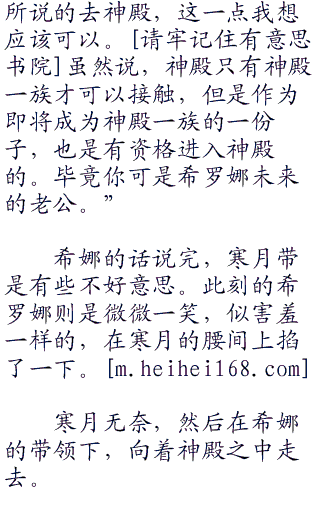 所说的去神殿，这一点我想
应该可以。[请牢记住有意思
书院]虽然说，神殿只有神殿
一族才可以接触，但是作为
即将成为神殿一族的一份
子，也是有资格进入神殿
的。毕竟你可是希罗娜未来
的老公。”
希娜的话说完，寒月带
是有些不好意思。此刻的希
罗娜则是微微一笑，似害羞
一样的，在寒月的腰间上掐
了一下。[m.heihei168.com]
寒月无奈，然后在希娜
的带领下，向着神殿之中走
去。